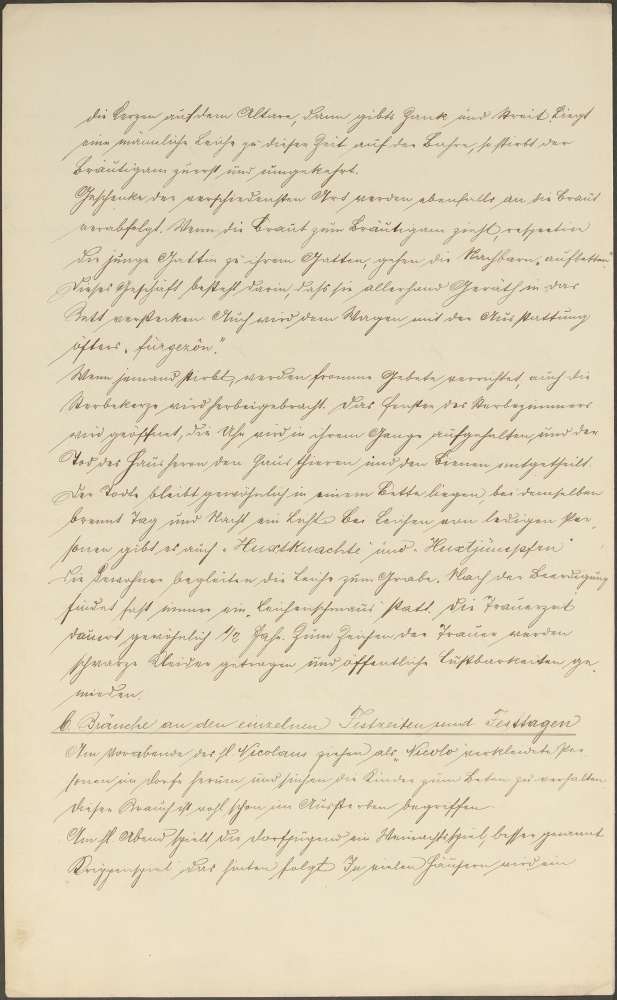 die Kerzen auf dem Altare, dann gibts Zank und Streit. Liegt
eine männliche Leiche zu dieser Zeit auf der Bahre, so stirbt der
Bräutigam zuerst und umgekehrt.
Geschenke der verschiedensten Art werden ebenfalls an die Braut
verabfolgt. Wenn die Braut zum Bräutigam zieht, respective
die junge Gattin zu ihrem Gatten, gehen die Nachbarn „aufbetten“.
Dieses Geschäft besteht darin, daß sie allerhand Geräth in das
Bett verstecken. Auch wird dem Wagen mit der Ausstattung
öfters „fürgezôn“.
Wenn jemand stirbt, werden fromme Gebete verrichtet, auch die
Sterbekerze wird herbeigebracht. Das Fenster des Sterbezimmers
wird geöffnet, die Uhr wird in ihrem Gange aufgehalten, und der
Tod des Hausherrn den Hausthieren und den Bienen mitgetheilt.
Der Todte bleibt gewöhnlich in einem Bette liegen, bei demselben
brennt Tag und Nacht ein Licht. Bei Leichen von ledigen Per-
sonen gibt es auch „Huxtknachte“ und „Huxtjümpfen“
Die Bewohner begleiten die Leiche zum Grabe. Nach der Beerdigung
findet fast immer ein „Leichenschmaus“ statt. Die Trauerzeit
dauert gewöhnlich 1/2 Jahr. Zum Zeichen der Trauer werden
schwarze Kleider getragen und öffentliche Lustbarkeiten ge-
mieden.
b. Bräuche an den einzelnen Festzeiten und Festtagen
Am Vorabende des hl. Nicolaus ziehen als „Nicolo“ verkleidete Per-
sonen im Dorfe herum und suchen die Kinder zum Beten zu verhalten.
Dieser Brauch ist wohl schon im Aussterben begriffen.
Am hl. Abend spielt die Dorfjugend ein Weinachtsspiel, besser genannt
Krippenspiel das hinten folgt. In vielen Häusern wird ein